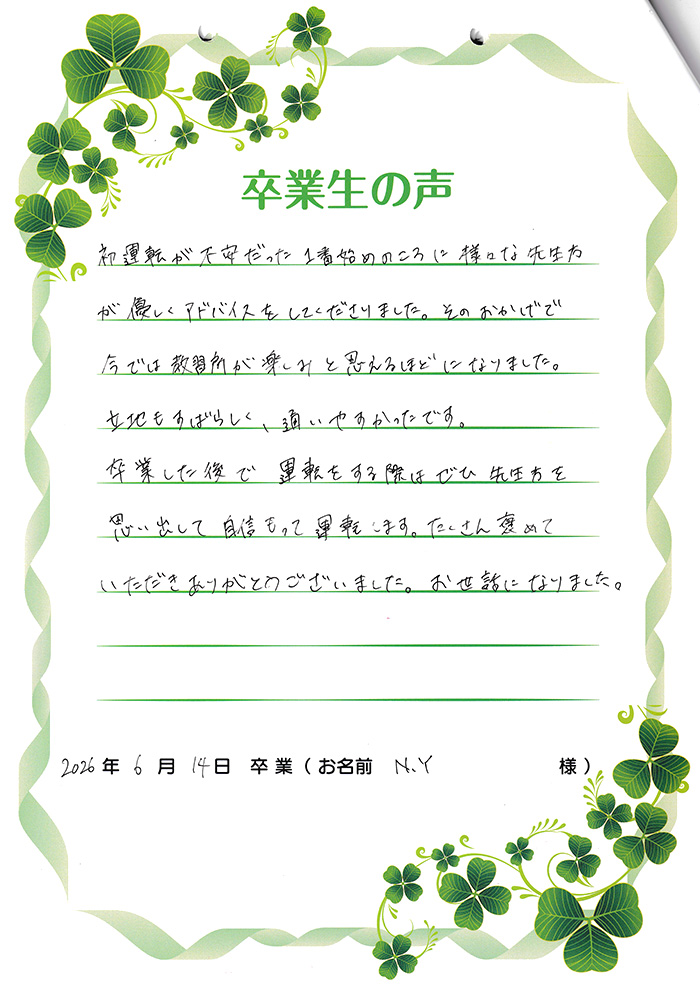 卒業生の声
初運転が不安だった1番始めのころに様々な先生方
が優しくアドバイスをしてくださりました。そのおかげで
今では教習所が楽しみと思えるほどになりました。
立地もすばらしく、通いやすかったです。
卒業した後で運転をする際はぜひ先生方を
思い出して自信もって運転します。たくさん褒めて
いただきありがとうございました。お世話になりました。
2026年6月14日 卒業(お名前 N.Y 様)